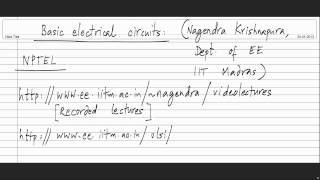 Basic electrical circuits: (Nagendra Krishnapura,
Dept of EE
IIT Madras)
NPTEL
http://www.ee.iitm.ac.in/~nagendra/videolectures
[Recorded lectures]
http://www.ee.iitm.ac.in/vlsi/